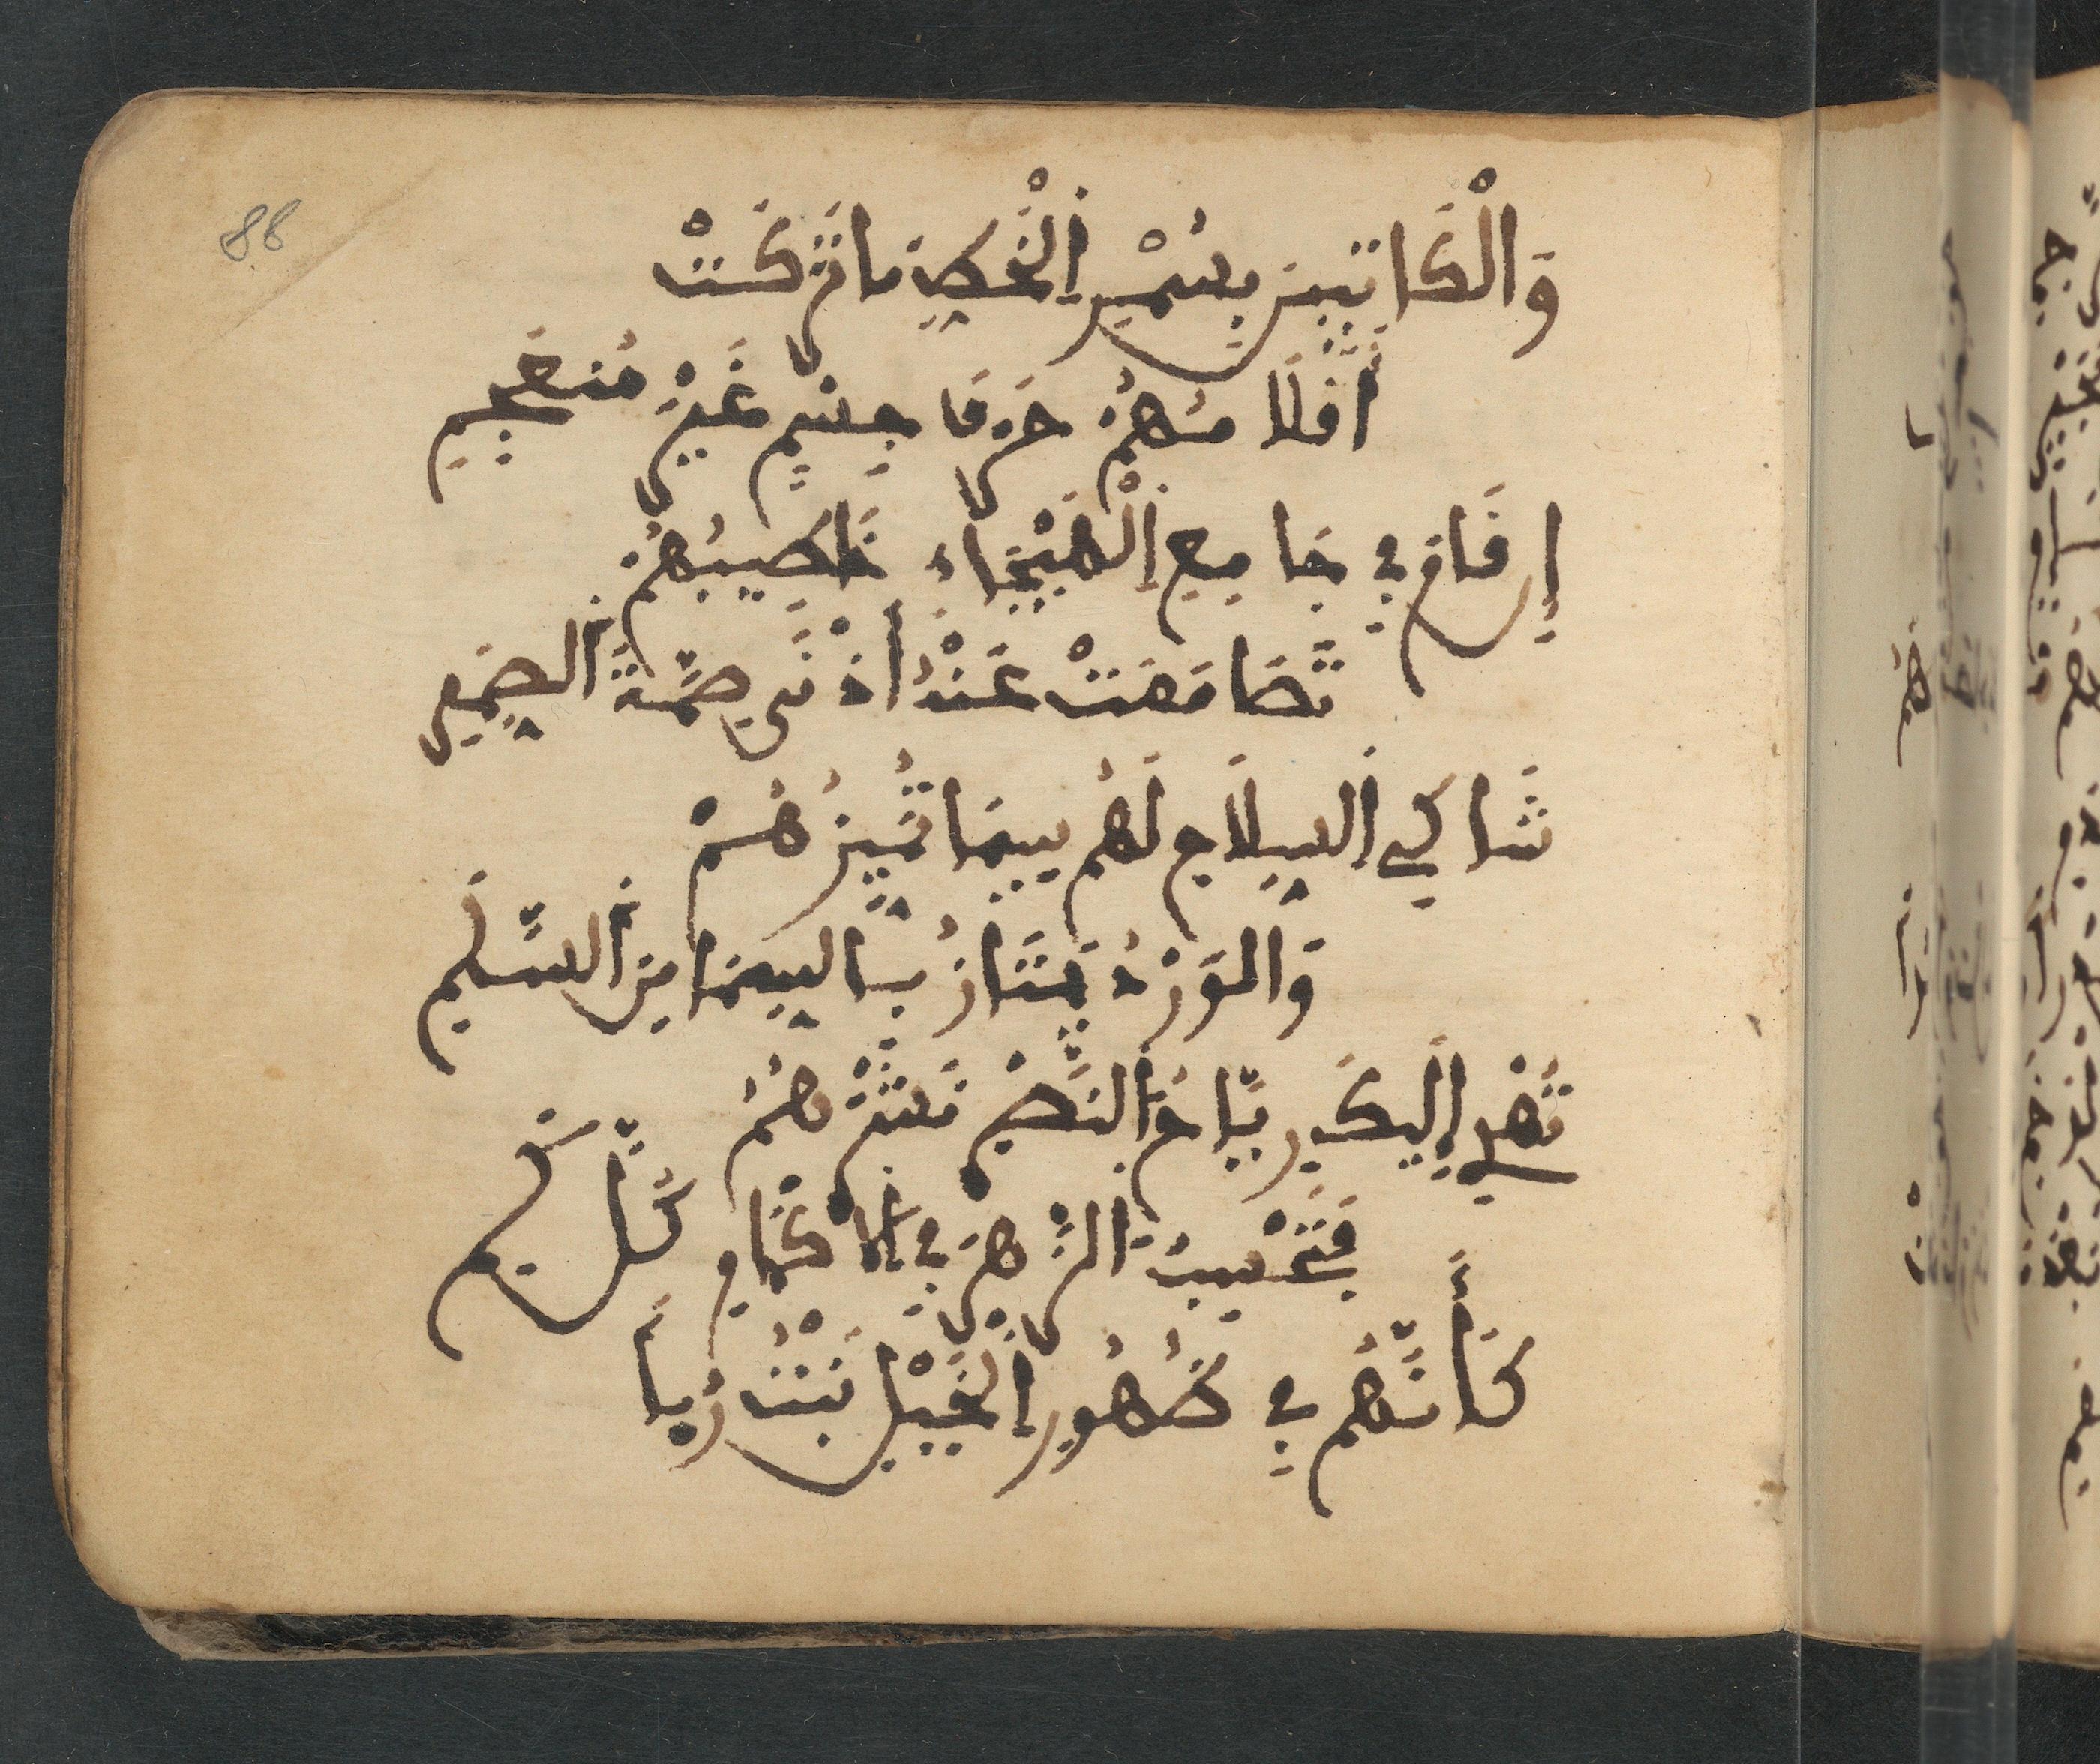 88
وَالْكَاتِبِينَ بِسُمْرِ اَلْخَطِّ مَا تَرَكَتْ
أَقْلَامُهُمْ حَرْفَ جِسْمٍ غَيْرَ مُنْعَجِمِ
إِن قَامَ فِي جَامِعِ اَلْهَيْجَاءِ خَطِيبُهُمْ
تَصَامَمَتْ عَنْهُ أُذْنَى صِمَّةَ اَلصِّمَمِ
شَاكِي اَلسِّلَاحِ لَهُمْ سِيمَا تُمَيِّزُهُمْ
وَالْوَرْدُ يَمْتَازُ بِالسِّيمَا مِنَ اَلسَّلَمِ
تُهْدِي إِلَيْكَ رِيَاحُ اَلنَّصْرِ نَشْرَهُمُ
فَتَحْسِبُ اَلزَّهْرَ فِي اَلْأَكْمَامِ كُلَّ كَمِ
كَأَنَّهُمْ فِي ظُهُورِ اِلْخَيْلِ نَبْتُ رُبىً